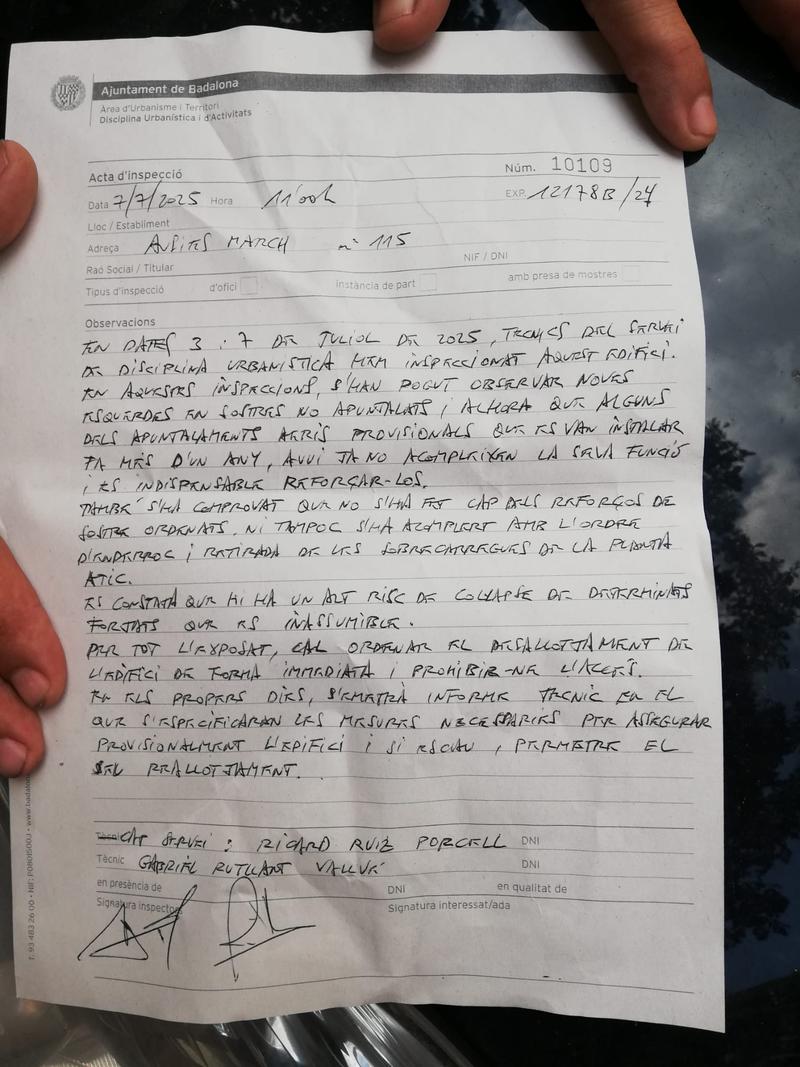 Ajuntament de Badalona
Àrea d'Urbanisme i Territori
Disciplina Urbanística i d'Activitats
Acta d'inspecció Núm. 10109
Data 7/7/2025 Hora 11'00h EXP. 12178B/24
Lloc / Establiment
Adreça AUSIÀS MARCH nº 115
NIF / DNI
Raó Social / Titular
Tipus d'inspecció d'ofici instància de part amb presa de mostres
Observacions
EN DATES 3 i 7 DE JULIOL DE 2025, TECNICS DEL SERVEI
DE DISCIPLINA URBANISTICA HEM INSPECCIONAT AQUEST EDIFICI.
EN AQUESTES INSPECCIONS, S'HAN POGUT OBSERVAR NOVES
ESQUERDES EN SOSTRES NO APUNTALATS i ALHORA QUE ALGUNS
DELS APUNTALAMENTS PROVISIONALS QUE ES VAN INSTALAR
FA MÉS D'UN ANY, AVUI JA NO ACOMPLEIXEN LA SEVA FUNCIÓ
i ES INDISPENSABLE REFORÇAR-LOS.
TAMBÉ S'HA COMPROVAT QUE NO S'HA FET CAP DELS REFORÇOS DE
SOSTRE ORDENATS. NI TAMPOC S'HA ACOMPLERT AMB L'ORDRE
D'ENDERROC i RETIRADA DE LES SOBRECARREGUES DE LA PLANTA
ATIC.
ES CONSTATA QUE HI HA UN ALT RISC DE COL·LAPSE DE DETERMINATS
FORJATS QUE ES INASSUMIBLE.
PER TOT L'EXPOSAT, CAL ORDENAR EL DESALLOTJAMENT DE
L'EDIFICI DE FORMA IMMEDIATA i PROHIBIR-NE L'ACCÉS.
EN ELS PROPERS DIES, S'EMETRÀ INFORME TECNIC EN EL
QUE S'ESPECIFICARAN LES MESURES NECESSARIES PER ASSEGURAR
PROVISIONALMENT L'EDIFICI i SI ESCAU, PERMETRE EL
SEU REALLOTJAMENT.
Tècnic CAP SERVEI: RICARD RUIZ PORCELL DNI
Tècnic GABRIEL RUTLLANT VALLVÉ DNI
en presència de DNI en qualitat de
Signatura inspector Signatura interessat/ada
T. 93 483 26 00 • NIF: P0801500J • www.badalona